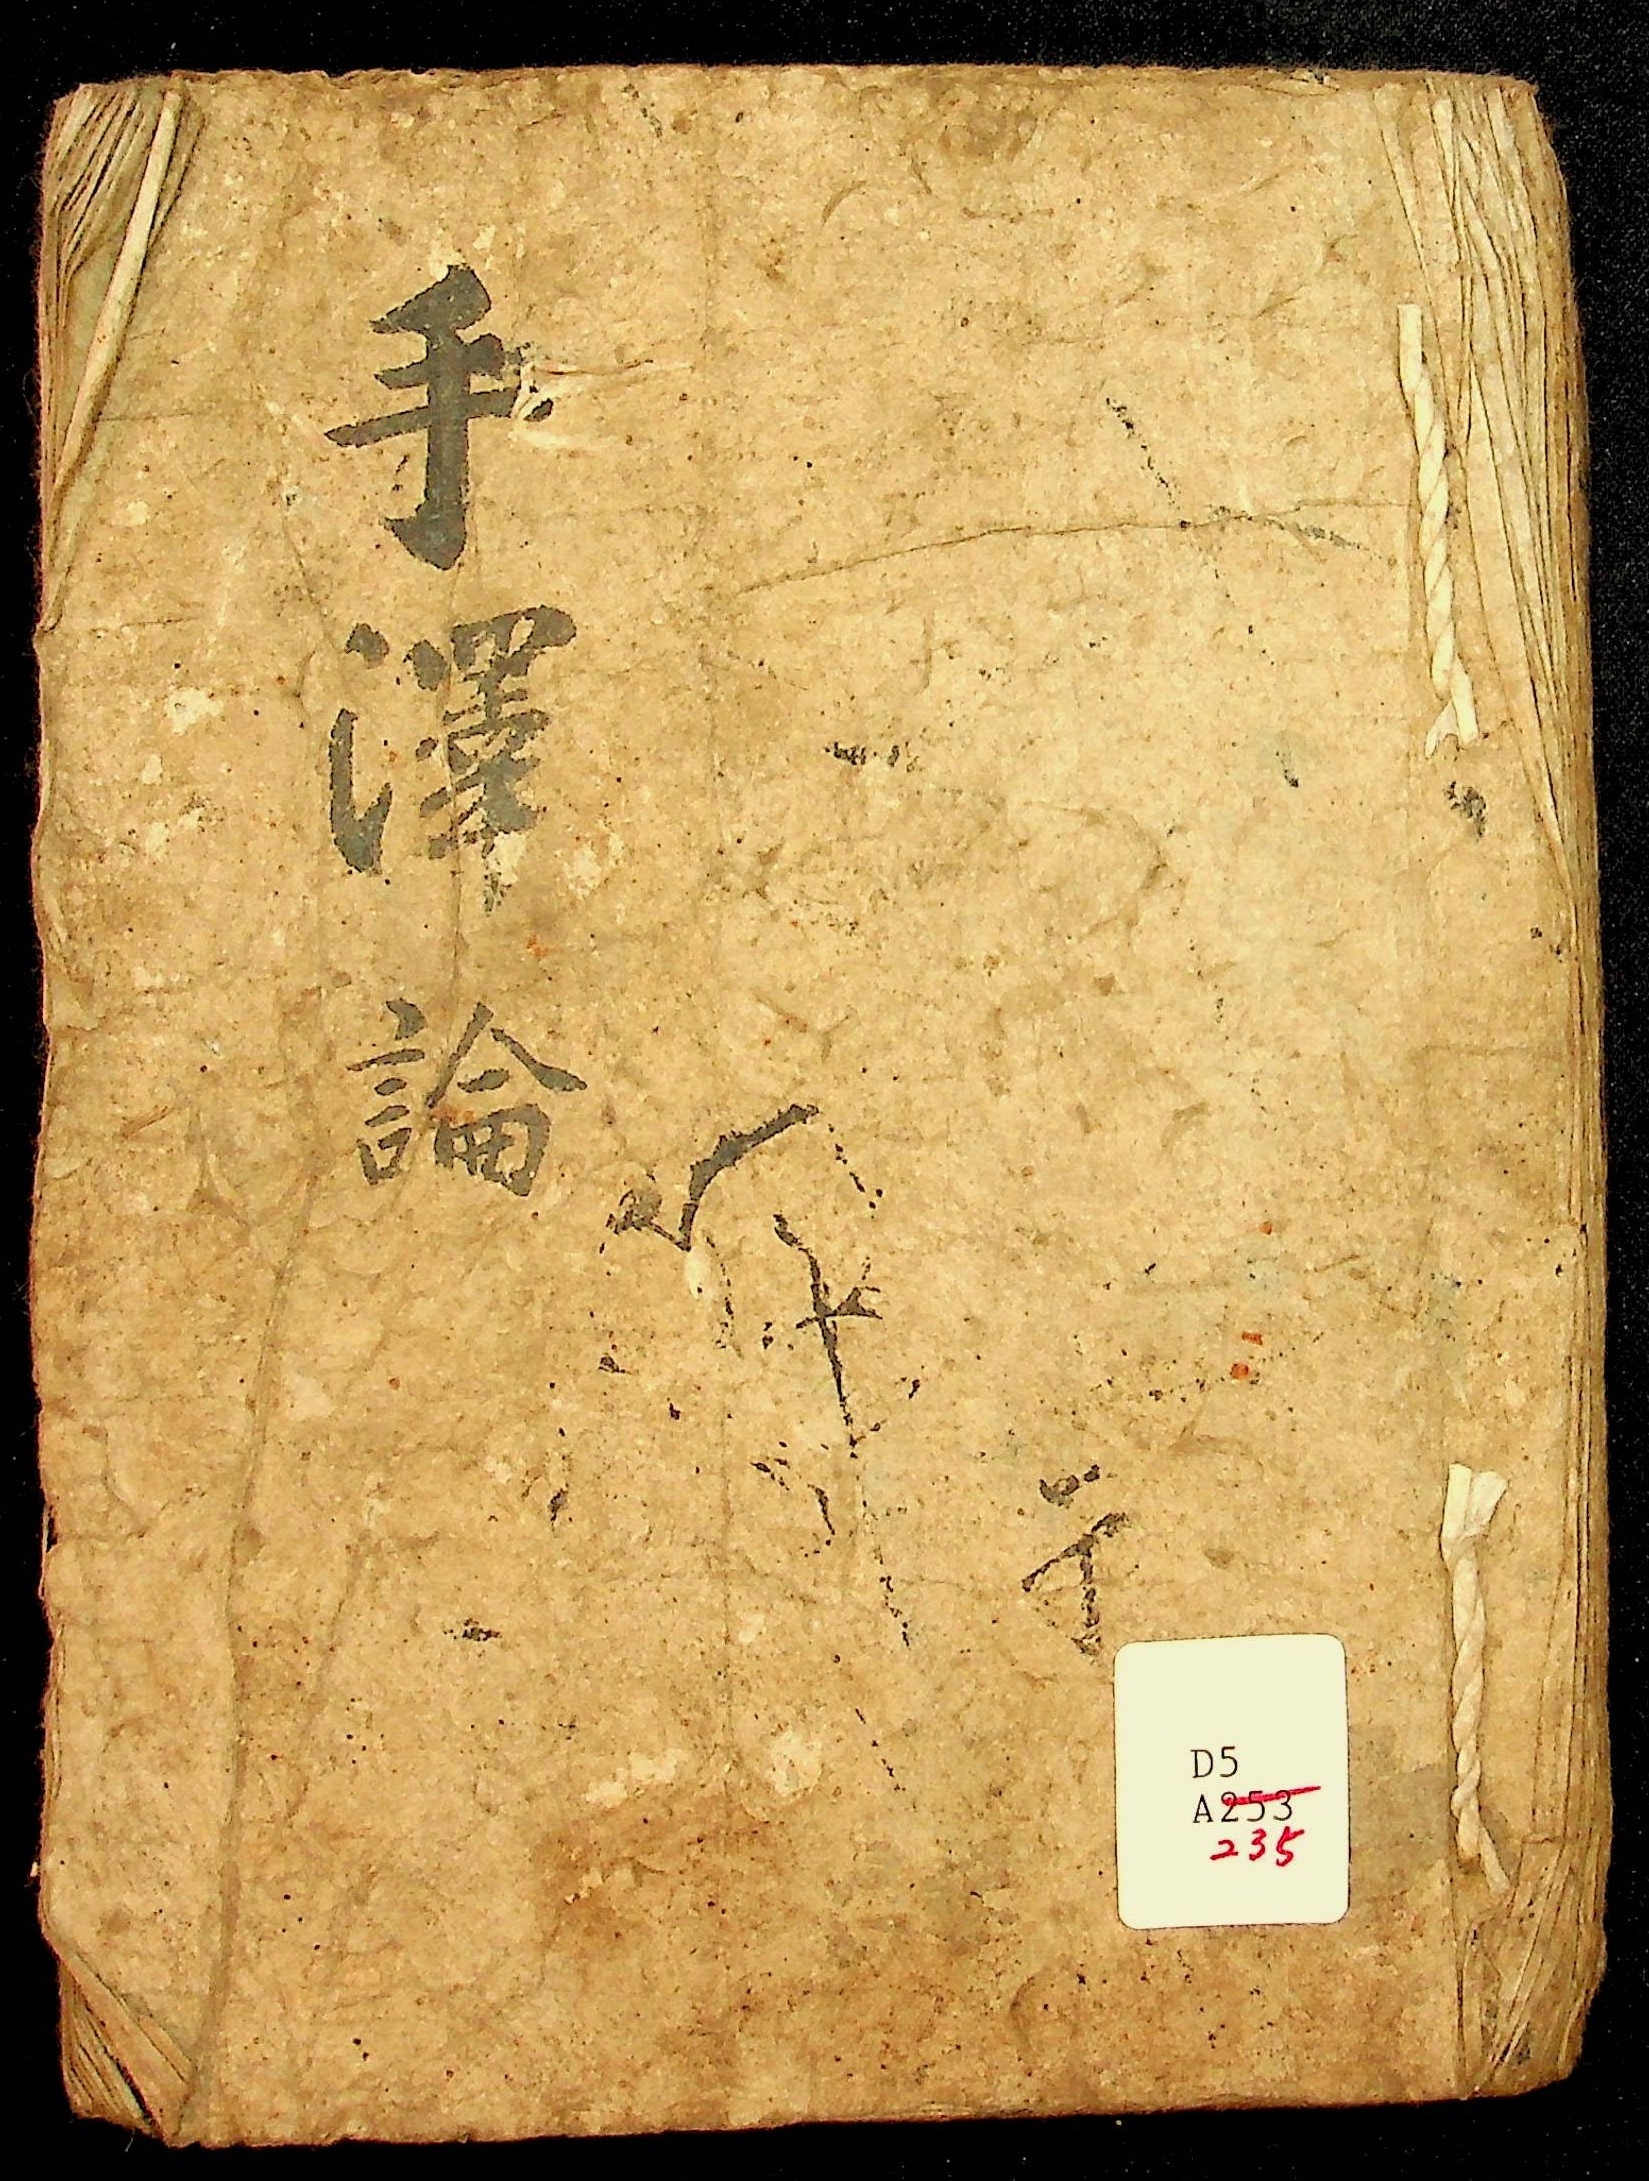 手澤論
D5
A253
235